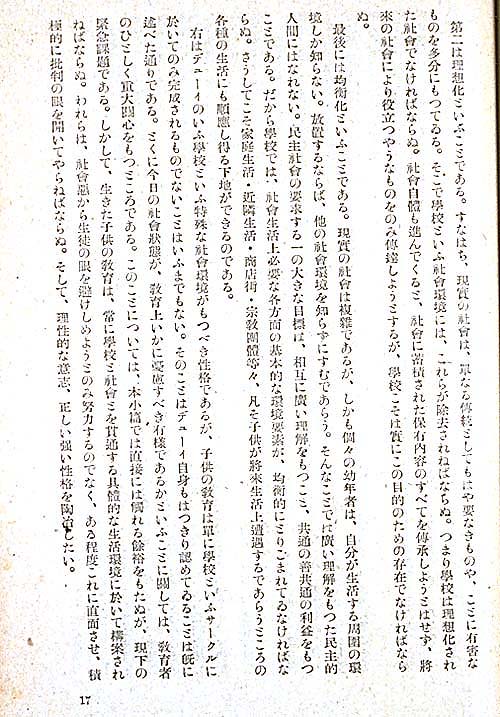 第二は理想化といふことである。すなはち、現實の社會は、單なる傳統としてもはや要なきものや、ことに有害な
ものを多分にもつてゐる。そこで學校といふ社會環境には、これらが除去されねばならぬ。つまり學校は理想化され
た社會でなければならぬ。社會自體も進んでくると、社會に蓄積された保有内容のすべてを傳承しようとはせず、將
來の社會により役立つやうなものをのみ傳達しようとするが、學校こそは實にこの目的のための存在でなければなら
ぬ。
最後には均衡化といふことである。現實の社會は複雜であるが、しかも個々の幼年者は、自分が生活する周圍の環
境しか知らない。放置するならば、他の社會環境を知らずにすむであらう。そんなことでは廣い理解をもつた民主的
人間にはなれない。民主社會の要求する一の大きな目標は、相互に廣い理解をもつこと、共通の善共通の利益をもつ
ことである。だから學校では、社會生活上必要な各方面の基本的な環境要素が、均衡的にとりこまれてゐなければな
らぬ。さうしてこそ家庭生活・近隣生活・商店街・宗教團體等々、凡そ子供が將來生活上遭遇するであらうところの
各種の生活にも順應し得る下地ができるのである。
右はデューイのいふ學校といふ特殊な社會環境がもつべき性格であるが、子供の教育は單に學校といふサークルに
於いてのみ完成されるものでないことはいふまでもない。そのことはデューイ自身もはつきり認めてゐることは既に
述べた通りである。とくに今日の社會狀態が、教育上いかに憂慮すべき有樣であるかといふことに關しては、教育者
のひとしく重大關心をもつところである。このことについては、本小篇では直接には觸れる餘裕をもたぬが、現下の
緊急課題である。しかして、生きた子供の教育は、常に學校と社會とを貫通する具體的な生活環境に於いて構案され
ねばならぬ。われらは、社會惡から生徒の眼を避けしめようとのみ努力するのでなく、ある程度これに直面させ、積
極的に批判の眼を開いてやらねばならぬ。そして、理性的な意志、正しい強い性格を陶冶したい。
17